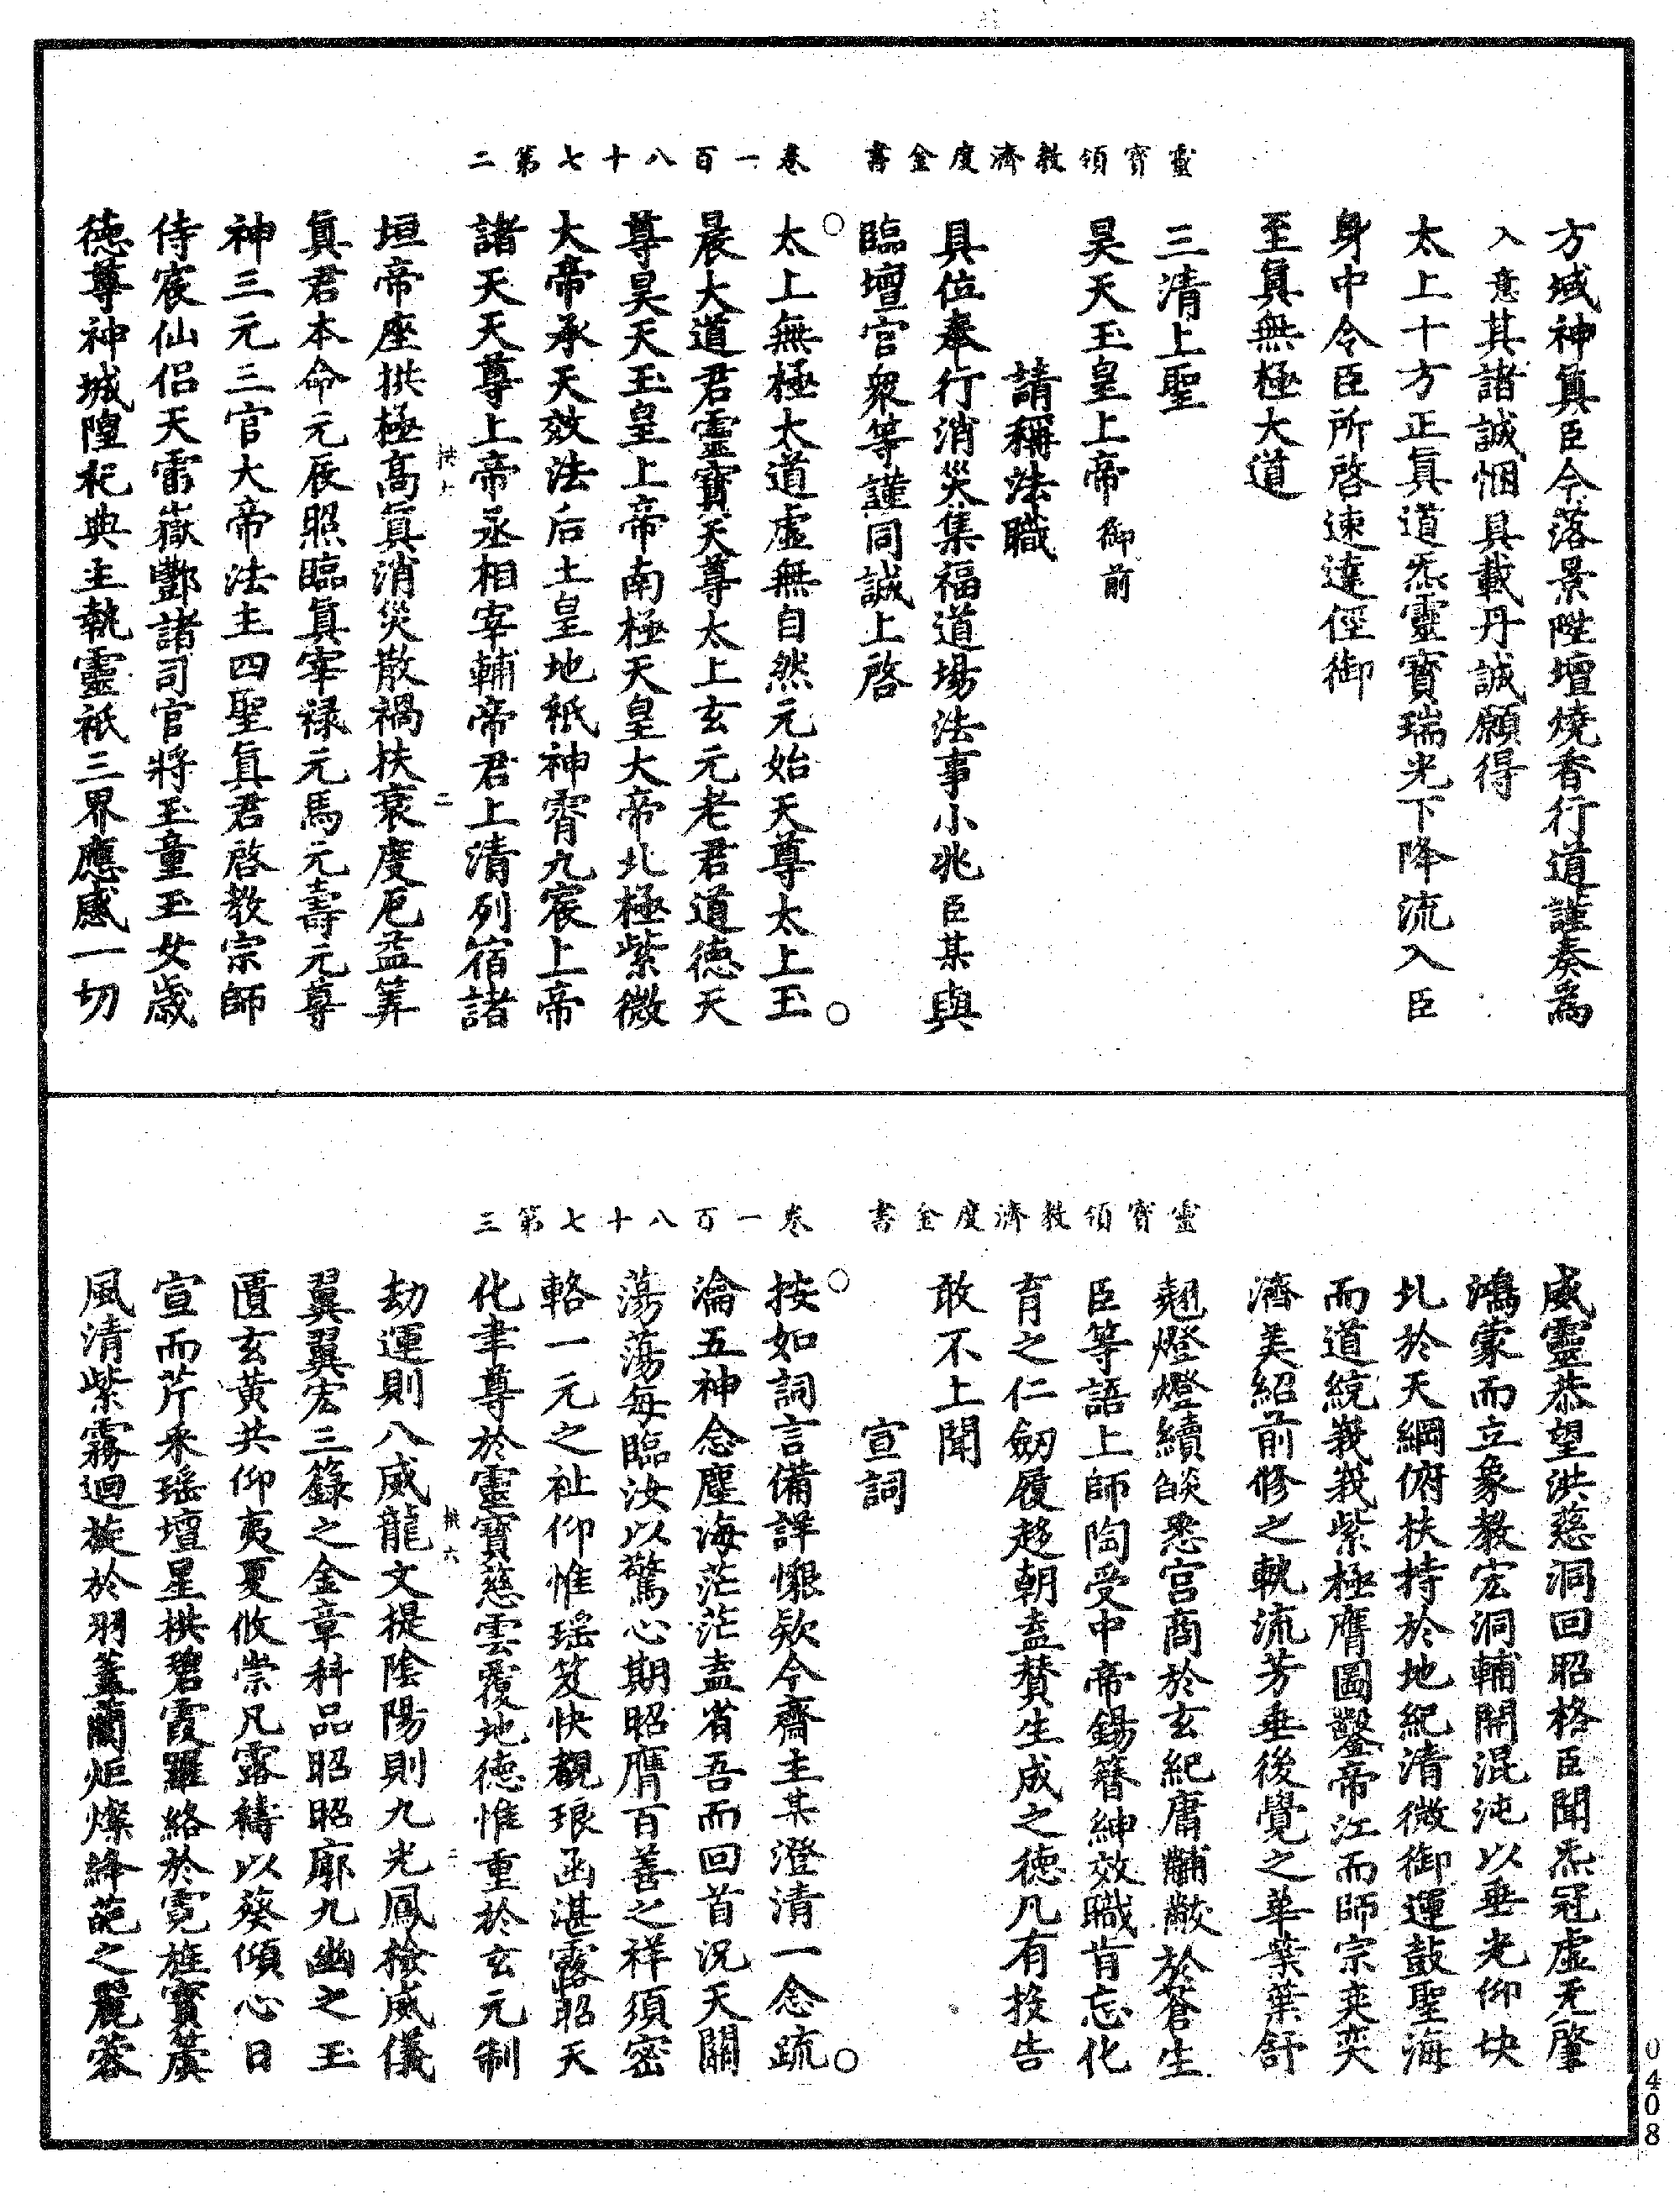 靈寶領教濟度金書　卷一百八十七第二
方域神眞臣今落景陞壇燒香行道謹奏爲
入意其諸誠悃具載丹誠願得
太上十方正眞道炁靈寶瑞光下降流入臣
身中令臣所啓速達徑御
至眞無極大道
三清上聖
昊天玉皇上帝御前
請稱法職
具位奉行消災集福道場法事小兆臣某與
臨壇官衆等謹同誠上啓
太上無極太道虛無自然元始天尊太上玉
晨大道君靈寶天尊太上玄元老君道德天
尊昊天玉皇上帝南極天皇大帝北極紫微
大帝承天效法后土皇地祇神霄九宸上帝
諸天天尊上帝丞相宰輔帝君上清列宿諸
垣帝座拱極高眞消災散禍扶衰度厄益筭
眞君本命元辰照臨眞宰祿元馬元壽元尊
神三元三官大帝法主四聖眞君啓教宗師
侍宸仙侶天雷嶽酆諸司官將玉童玉女歲
德尊神城隍祀典主執靈祇三界應感一切
靈寶領教濟度金書　卷一百八十七第三
威靈恭望洪慈洞回昭格臣聞炁冠虛无肇
鴻蒙而立象教宏洞輔開混沌以垂光仰块
圠於天綱俯扶持於地紀清微御運鼓聖海
而道統峩峩紫極膺圖鑿帝江而師宗奕奕
濟美紹前修之軌流芳垂後覺之華葉葉舒
翹燈燈續燄悉宮商於玄紀庸黼黻於蒼生
臣等語上師陶受中帝錫簪紳效職肯忘化
育之仁劒履趍朝盍賛生成之德凡有投告
敢不上聞
宣詞
按如詞言備詳懇欵今齋主某澄清一念疏
淪五神念塵海茫茫盍省吾而回首況天關
蕩蕩每臨汝以驚心期昭膺百善之祥須密
輅一元之祉仰惟瑤笈快覩琅函湛露昭天
化聿尊於靈寶慈雲覆地德惟重於玄元制
劫運則八威龍文提陰陽則九光鳳檢威儀
翼翼宏三籙之金章科品昭昭廓九幽之玉
匱玄黃共仰夷夏攸崇凡露禱以葵傾心日
宣而芹釆瑤壇星拱碧霞羅絡於霓旌寶蓂
風清紫霧迴旋於羽蓋蘭炬燦絳葩之麗蓉
0408